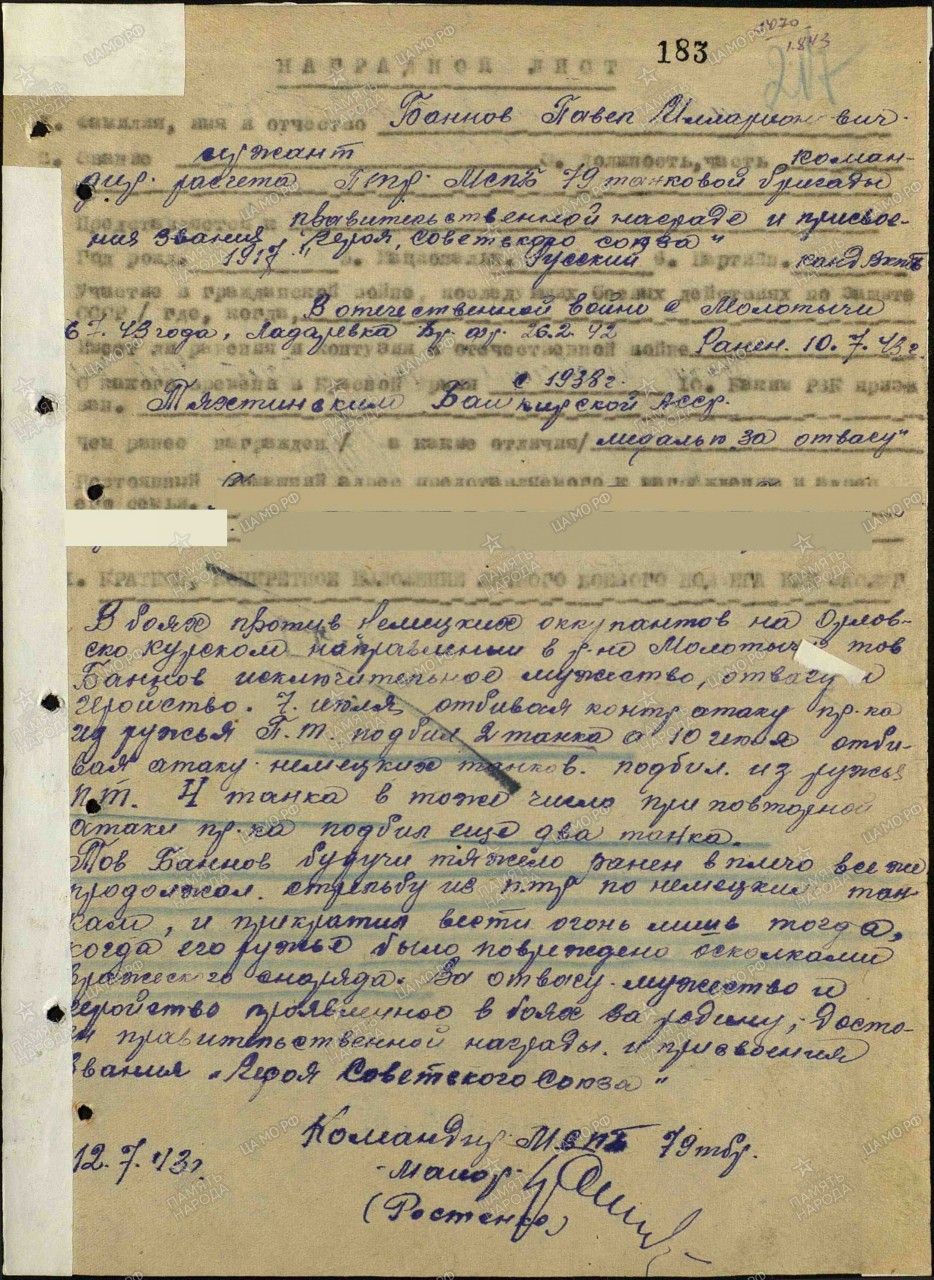 1070
1.843
183
217
НАГРАДНОЙ ЛИСТ
1. Фамилия, имя и отчество Баннов Павел Илларионович.
2. Звание сержант 3. Должность, часть коман-
дир. расчета Птр. МСПБ 79 танковой бригады
Представляется к правительственной награде и присвое-
ния звания "Героя, Советского союза"
Год рожд. 1917 Национальн. Русский 6. Партийн. канд ВКПб
Участие в гражданской войне, последующих боевых действиях по защите
СССР /где, когда/ В отечественной войно с Молотычи
6 7. 43 года, Ладаревка Бр. фр. 26.2.42
Имеет ли ранения и контузии в отечественной войне Ранен. 10. 7. 43 г.
С какого времени в Красной армии с 1938г. 10. Каким РВК приз-
ван. Башкирской АССР.
Чем ранее награжден / за какие отличия/ медалью "за отвагу"
Постоянный домашний адрес представляемого к награждению и адрес
его семьи.
1. КРАТКОЕ, КОНКРЕТНОЕ ИЗЛОЖЕНИЕ ЛИЧНОГО БОЕВОГО ПОДВИГА ИЛИ ЗАСЛУГ
В боях против немецких оккупантов на Орлов-
ско Курском направлении в р-не Молотычи тов
Баннов исключительное мужество, отвагу и
геройство. 7. июля отбивая контр атаку пр-ка
из ружья П.Т. подбил 2 танка а 10 июля отби-
вая атаку немецких танков. подбил. из ружья
П.Т. 4 танка в тоже число при повторной
атаки пр-ка подбил еще два танка.
Тов Баннов будучи тяжело ранен в плечо все же
продолжал. стрельбу из п.т.р по немецким тан-
кам, и прикратил вести огонь лишь тогда,
когда его ружье было повреждено осколками
вражеского снаряда. За отвагу мужество и
геройство проявленное в боях за родину, Досто-
ин правительственной награды. и присвоения
звания "Героя Советского Союза"
Командир МСПБ 79тбр.
12.7.43г. Маиор
(Ростенко)